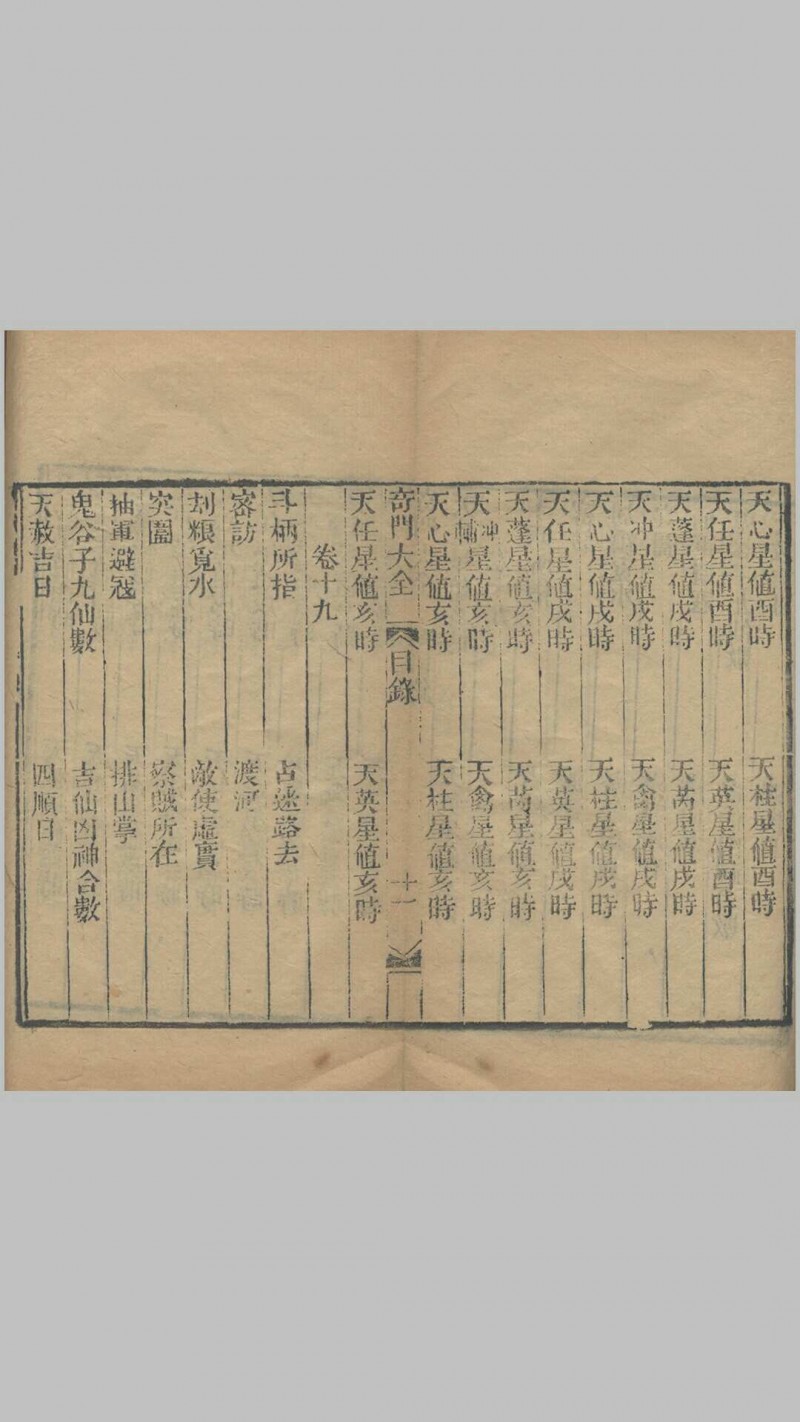 天心星值酉時　天柱星值酉時
天任星值酉時　天英星值酉時
天蓬星值戌時　天芮星值戌時
天冲星值戌時　天禽星值戌時
天心星值戌時　天柱星值戌時
天任星值戌時　天英星值戌時
天蓬星值亥時　天芮星值亥時
天冲輔星值亥時　天禽星值亥時
天心星值亥時　天柱星值亥時
奇門大全　目錄　十一
天任星值亥時　天英星值亥時
卷十九
斗柄所指　占迷路去
密訪　渡河
刦粮覓水　敵使虛實
突圍　察賊所在
抽軍避寇　排山掌
鬼谷子九仙數　吉仙凶神合數
天赦吉日　四順日